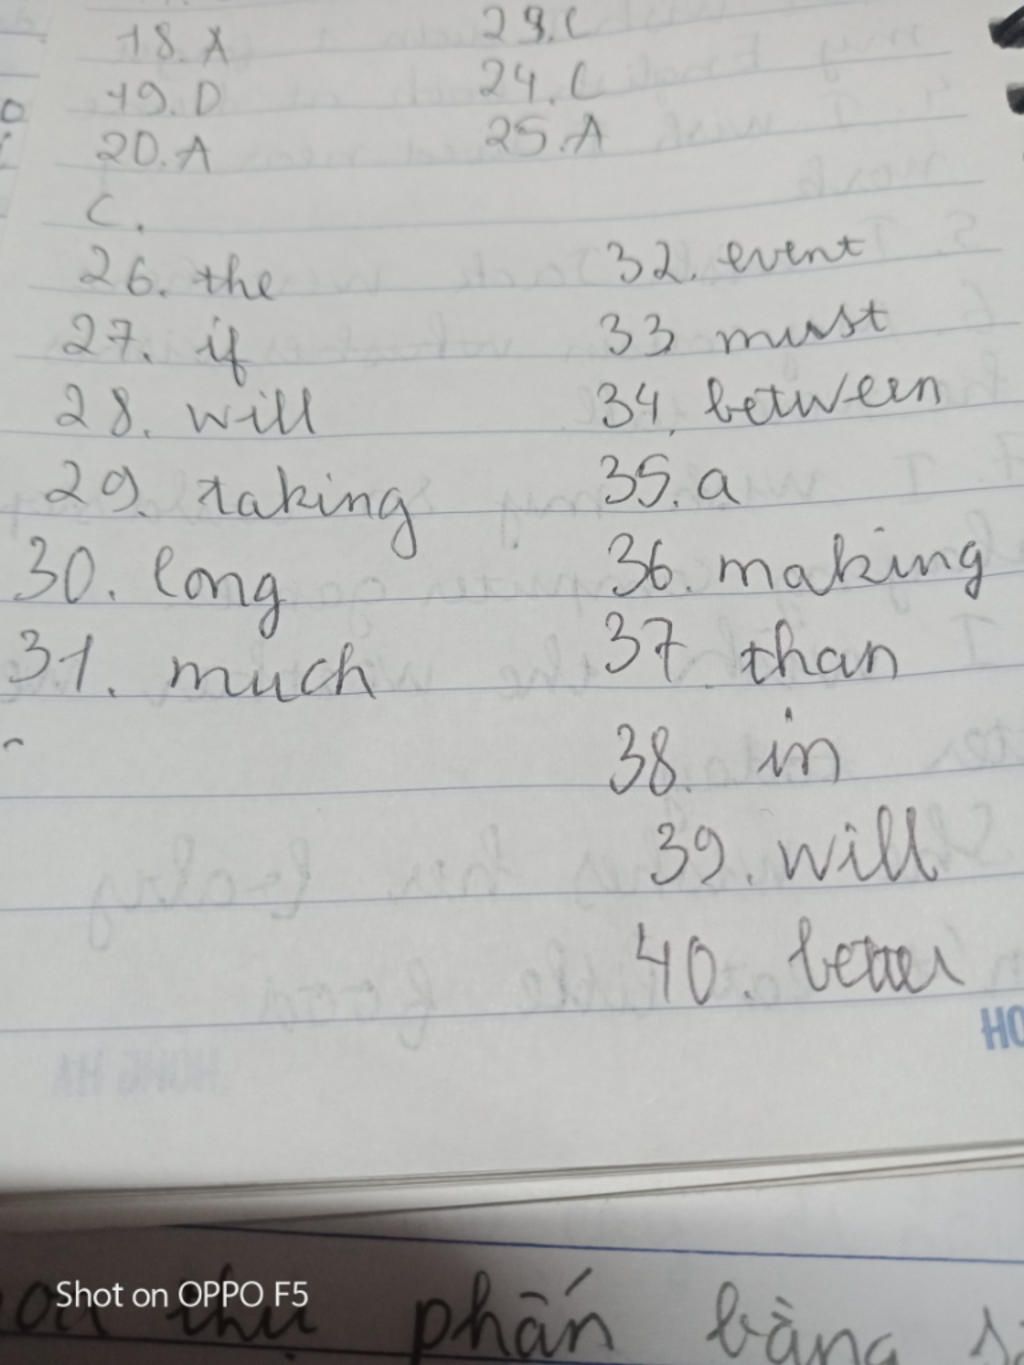 18. A
19. D
20. A
23. C
24. C
25. A
C.
26. the
27. if
28. will
29. taking
30. long
31. much
32. event
33 must
34. between
35. a
36. making
37. than
38. in
39. will
40. better
HO
Shot on OPPO F5
thụ phấn bằng